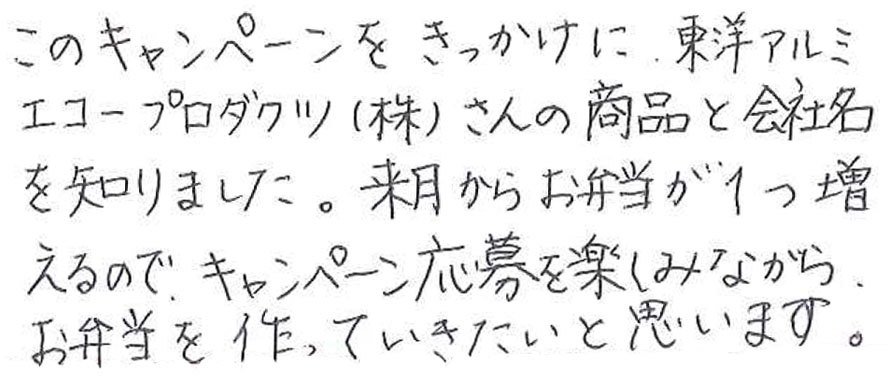 このキャンペーンをきっかけに、東洋アルミ
エコープロダクツ(株)さんの商品と会社名
を知りました。来月からお弁当が1つ増
えるので、キャンペーン応募を楽しみながら、
お弁当を作っていきたいと思います。